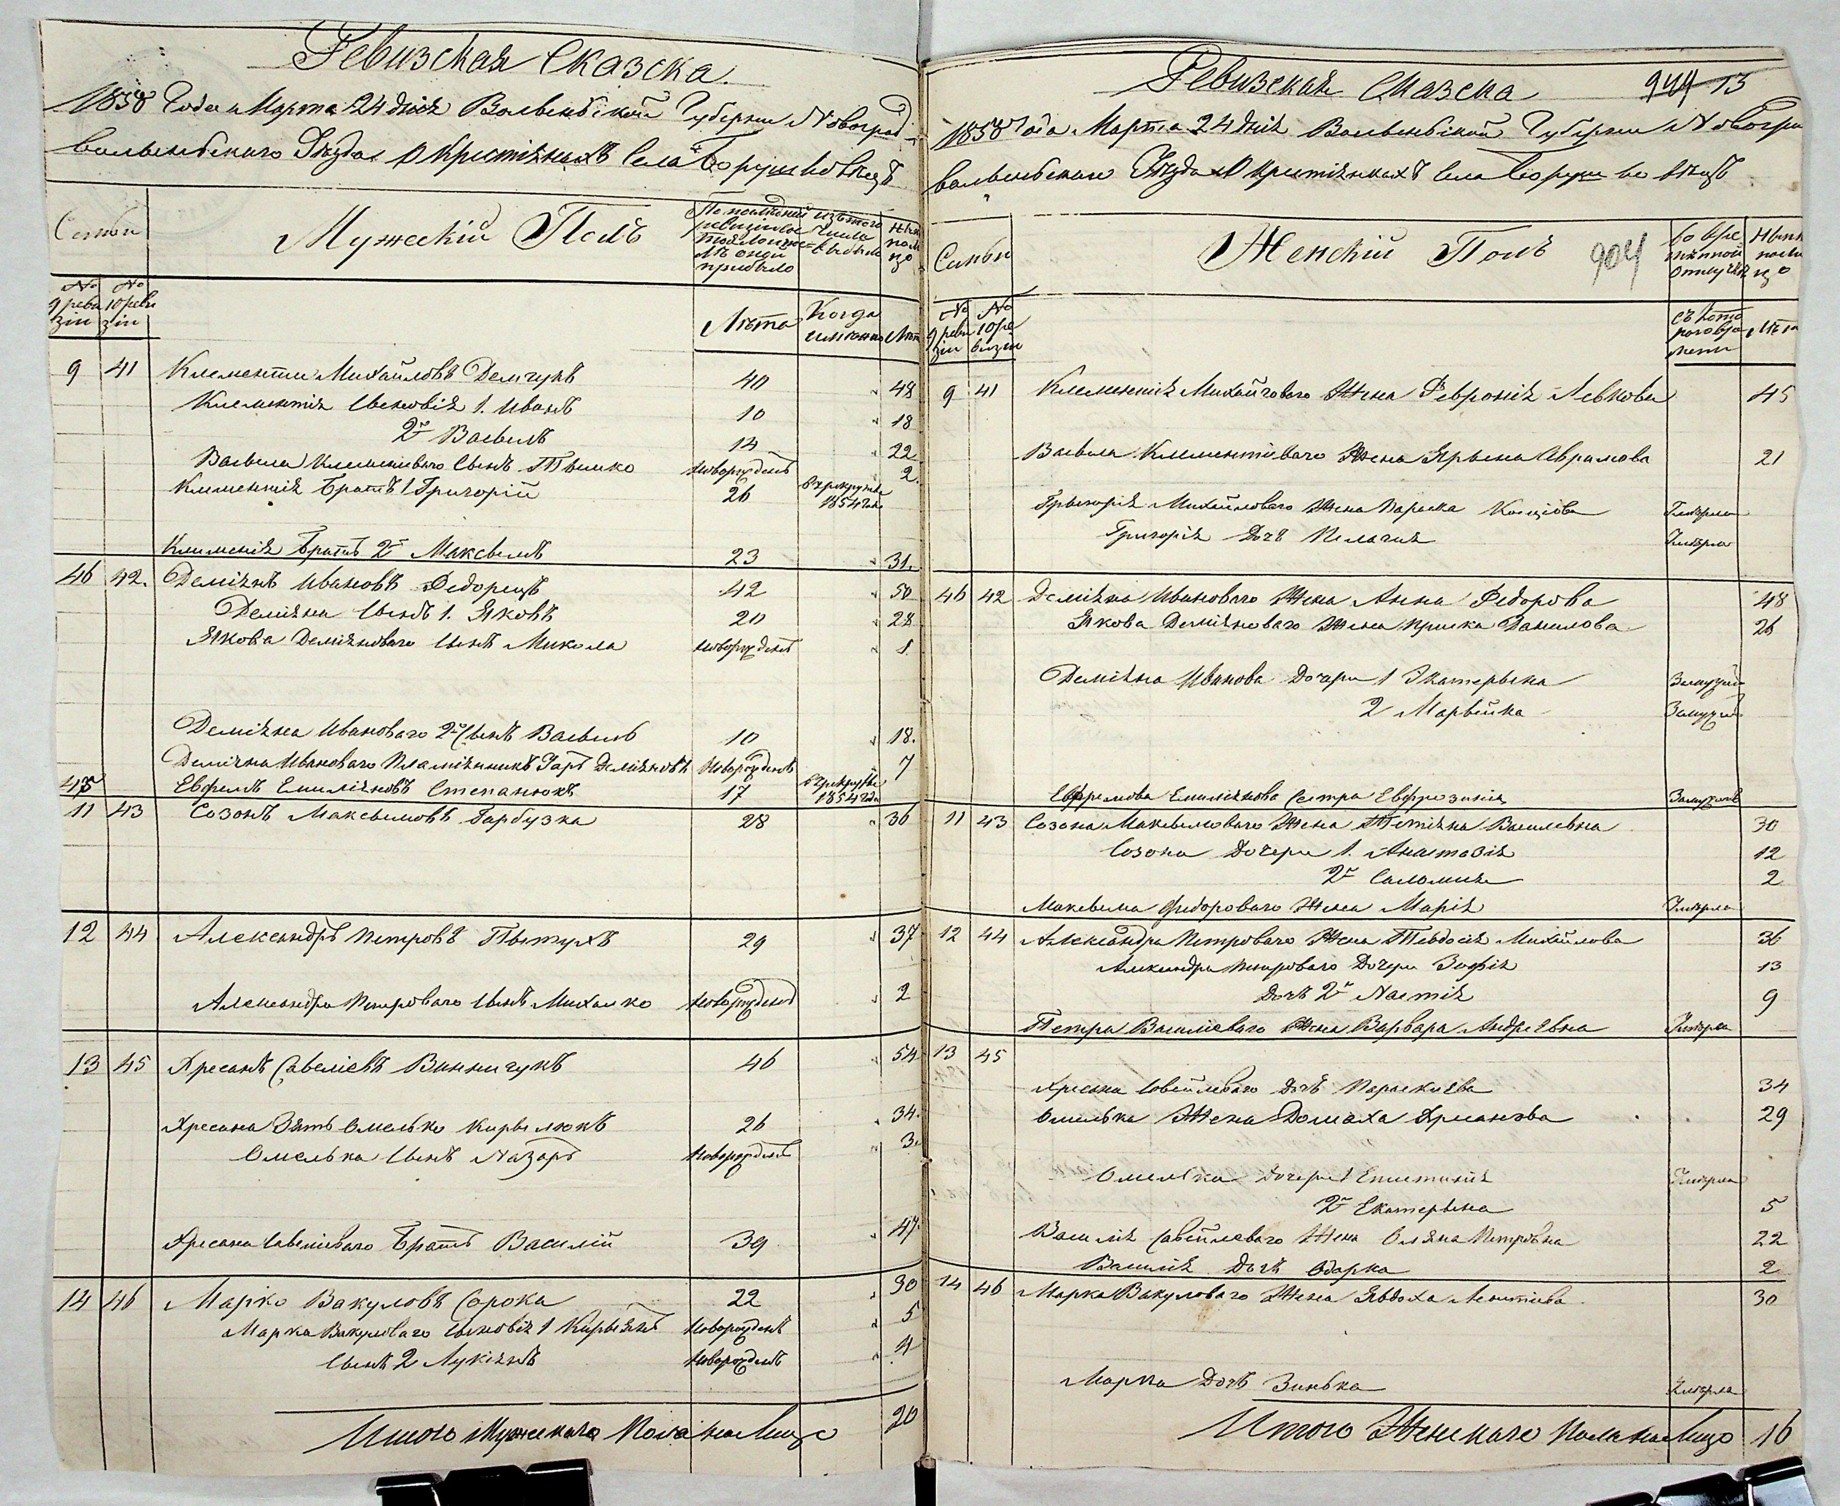 Ревизская Сказска
1858 Года Марта 24 дня Волынской Губернии Новоград
волынскаго Уезда О крестянахъ Села
Семьи
Мужескій Полъ
№ 9 ревизіи
№ 10 ревизіи
Лета
Когда именно
Лета
9 41 Клементи Михайловъ Демчукъ 40 48
Клементія Сыновія 1. Иванъ 10 18
2й Василь 14 22
Василя Клементіеваго Сынъ Тымко новорожденъ 2
Клементія Братъ 1 Григорій 26 1854 года
Клименія Братъ 2й Максымъ 23 31.
46 42. Деміянъ Ивановъ Федорецъ 42 50
Деміяна Сынъ 1. Яковъ 20 28
Якова Деміяноваго Сынъ Микола новорожденъ 1
Деміяна Иванова 2й Сынъ Василь 10 18.
Деміяна Ивановаго Племянникъ Деміяновъ Новорожденъ 7
47 Евфемъ Емиліяновъ Степанюкъ 17 1854 года
11 43 Созонъ Максымовъ Гарбузка 28 36
12 44 Александръ Петровъ Пытухъ 29 37
Александра Петроваго Сынъ Михалко новорожденъ 2
13 45 Хресанъ Савеліевъ Винничукъ 46 54
Хресана Зять Омелько Кирылюкъ 26 34.
Омелька Сынъ Назаръ Новорожденъ 3.
Хресана Савеліеваго Братъ Василій 39 47.
14 46 Марко Вакуловъ Сорока 22 30
Марка Вакуловаго Сыновія 1 Кирыянъ Новорожденъ 5
Сынъ 2 Лукіянъ новорожденъ 4
Итого Мужескаго Пола на Лицо 20
Ревизская Сказска 944 13
1858 Года Марта 24 дня Волынской Губернии Новогра
волынскаго Уезда О крестянахъ Села
Семьи
Женскій Полъ 904
№ 9 ревизіи
№ 10 ревизіи
Лета
9 41 Клементія Михайловаго Жена Февронія Левкова 45
Василя Клементіеваго Жена Ярына Аврамова 21
Грыгорія Михайловаго Жена Параска Умерла
Григорія Дочъ Пелагия Умерла
46 42 Деміяна Ивановаго Жена Анна Федорова 48
Якова Деміяноваго Жена Приска Данилова 26
Деміяна Иванова Дочери 1 Экатерына Замужем
2 Марыйка Замужем
Евфремова Емиліянова Сестра Евфрозинія Замужем
11 43 Созона Максымоваго Жена Тетіяна Василевна 30
Созона Дочери 1. Анастазія 12
2я Саломия 2
Максыма Федороваго Жена Марія Умерла
12 44 Александра Петроваго Жена Тевдосія Михайлова 36
Александра Петроваго Дочери Зофія 13
Дочъ 2я Настя 9
Петра Василіеваго Жена Варвара Андреевна Умерла
13 45
Хресана Дочъ Параскиева 34
Омелька Жена Домаха Хрисанова 29
Омелька Дочери 1 Умерла
2я Екатерына 5
Василія Савейлеваго Жена Оляна Петровна 22
Василія Дочъ Одарка 2
14 46 Марка Вакуловаго Жена Явдоха 30
Марка Дочъ Зинька Умерла
Итого Женскаго Пола на Лицо 16